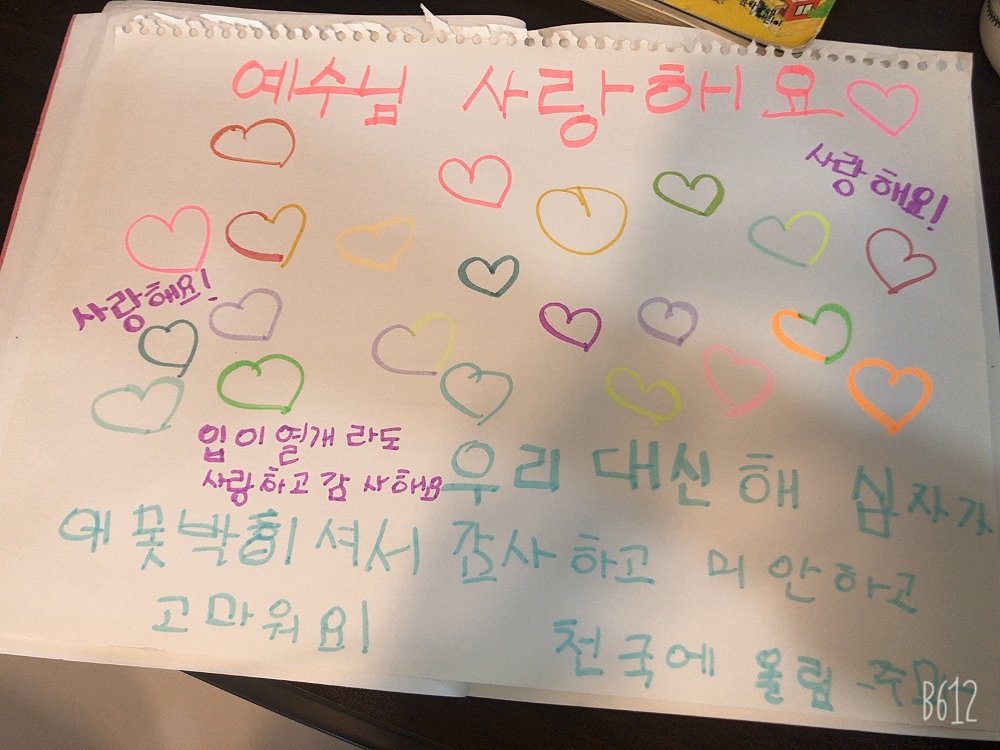 예수님 사랑해요
사랑해요!
사랑해요!
입이 열개라도
사랑하고 감사해요
우리 대신해 십자가
에 못박히셔서 감사하고 미안하고
고마워요!
천국에 올림
B612